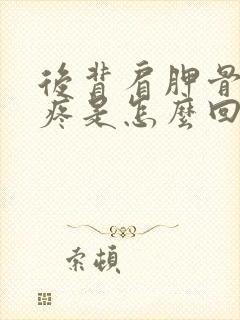 後背肩胛骨
疼是怎麼回
索頓